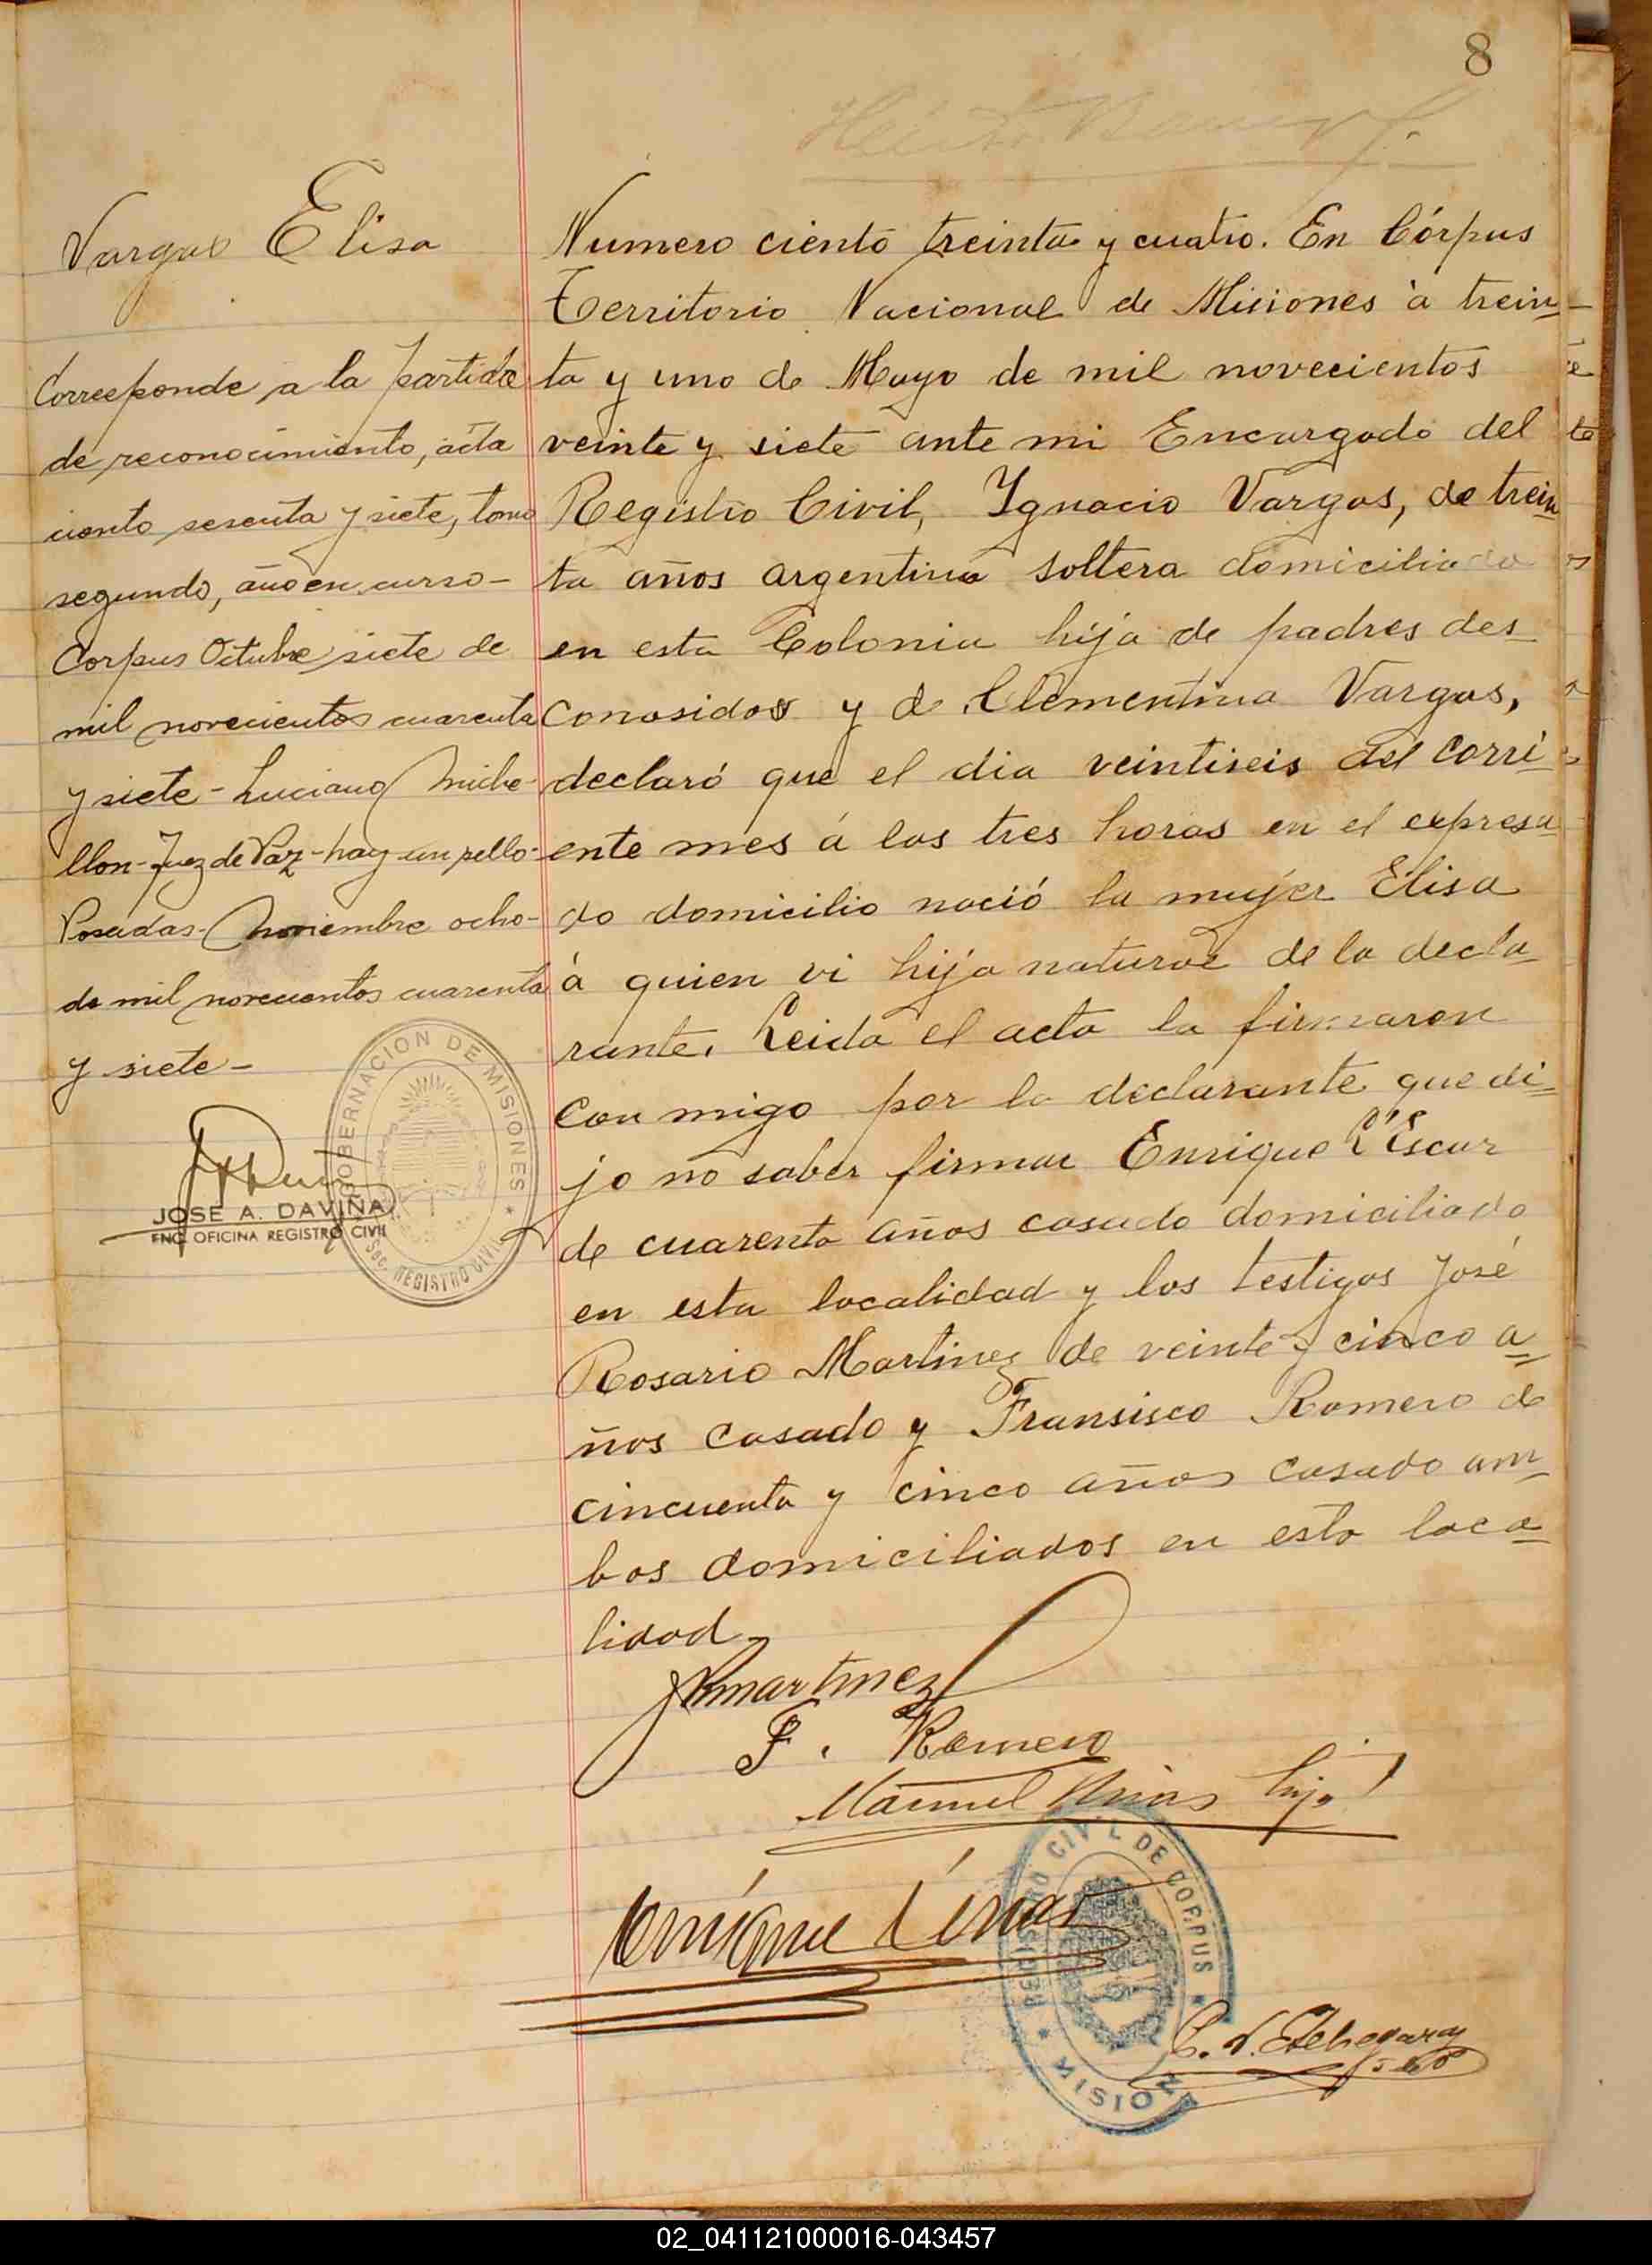 8
Vargas Elisa
Corresponde a la partida
de reconocimiento, acta
ciento sesenta y siete, tomo
segundo, año en curso-
Corpus Octubre siete de
mil novecientos cuarenta
y siete - Luciano Miche-
llon - Juez de Paz - hay un sello-
Posadas - Noviembre ocho-
de mil novecientos cuarenta
y siete -
JOSE A. DAVIÑA
ENC. OFICINA REGISTRO CIVIL
GOBERNACION DE MISIONES
Sec. REGISTRO CIVIL
Numero ciento treinta y cuatro. En Córpus
Territorio Nacional de Misiones à trein-
ta y uno de Mayo de mil novecientos
veinte y siete ante mi Encargado del
Registro Civil, Ygnacio Vargas, de trein
ta años argentina soltera domiciliada
en esta Colonia hija de padres des
conosidos y de Clementina Vargas,
declaró que el dia veintiseis del corri-
ente mes á las tres horas en el expresa
do domicilio nació la mujer Elisa
à quien vi hija natural de la decla-
rante. Leida el acta la firmaron
con migo por la declarante que di-
jo no saber firmar Enrique
de cuarenta años casado domiciliado
en esta localidad y los testigos José
Rosario Martinez de veinte y cinco a-
ños casado y Fransisco Romero de
cincuenta y cinco años casado am-
bos domiciliados en esta loca-
lidad
JRmartinez
F. Romero
Manuel hijo
Enrique
REGISTRO CIVIL DE CORPUS
MISION
Etchegaray
02_041121000016-043457